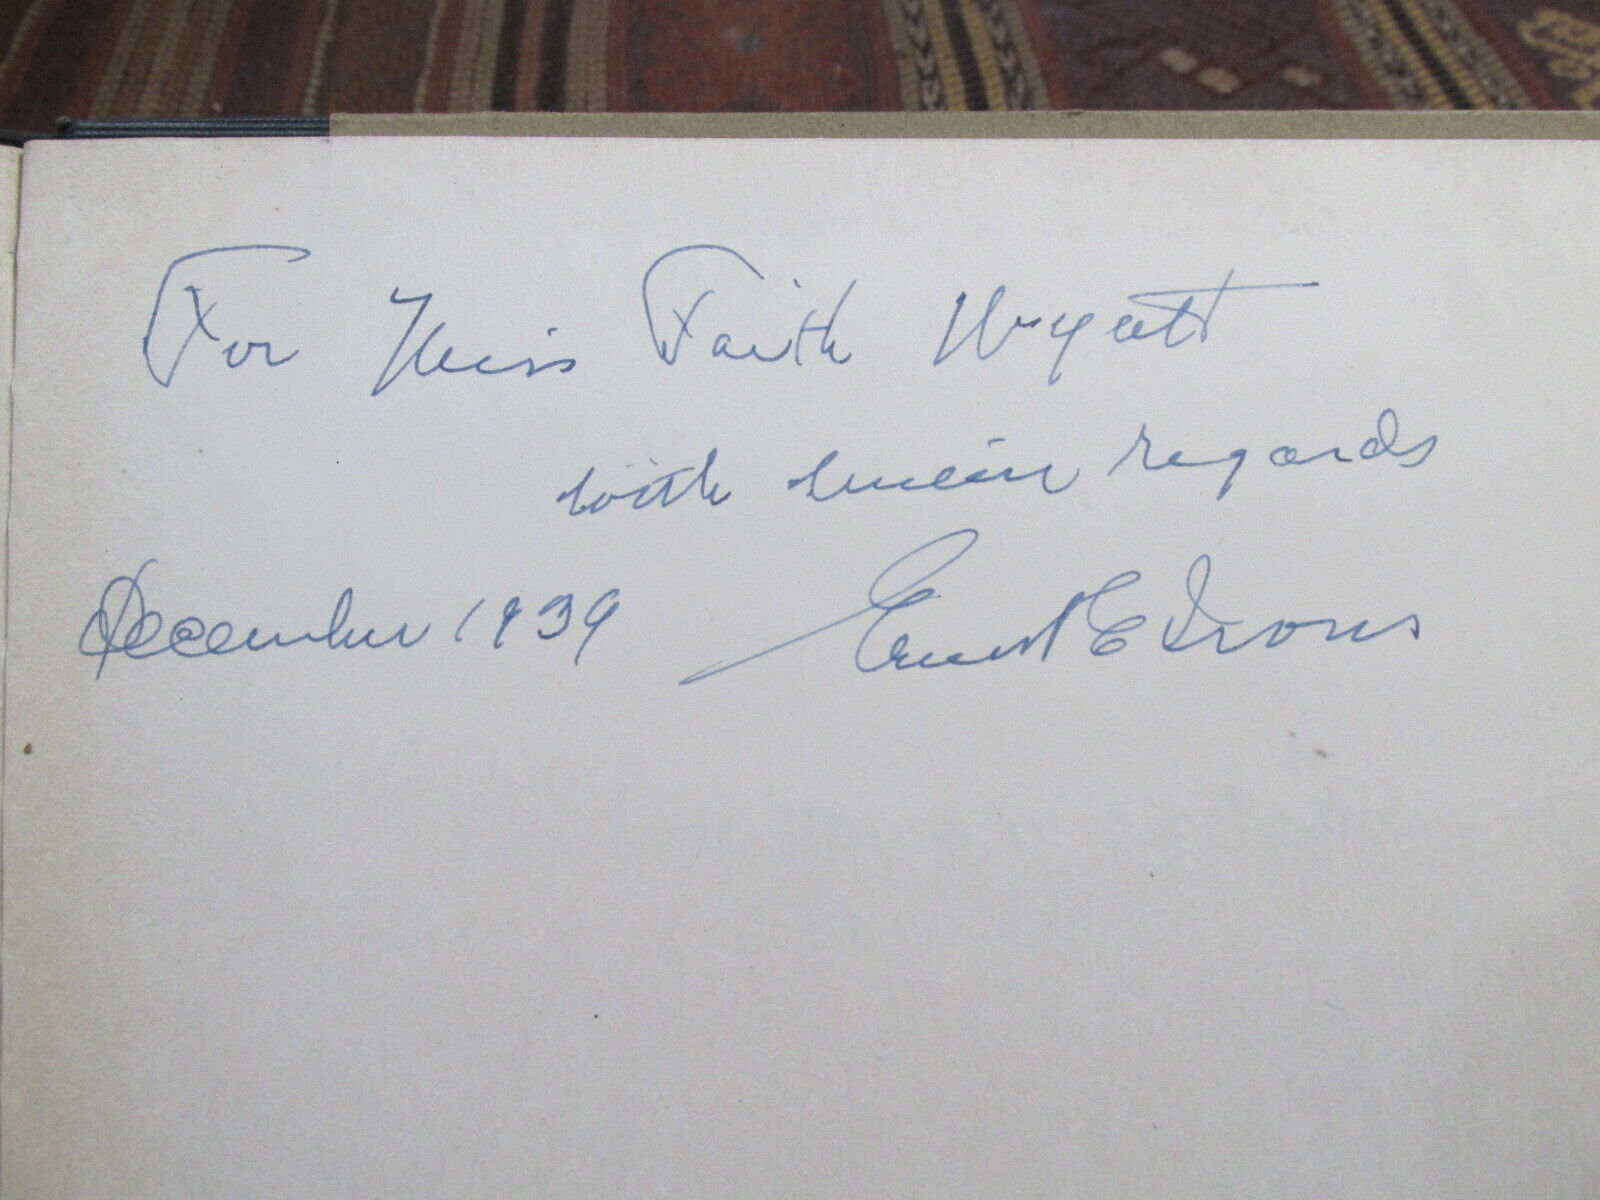 For Miss Faith Wyatt
with sincere regards
December 1939 Ernest E Irons